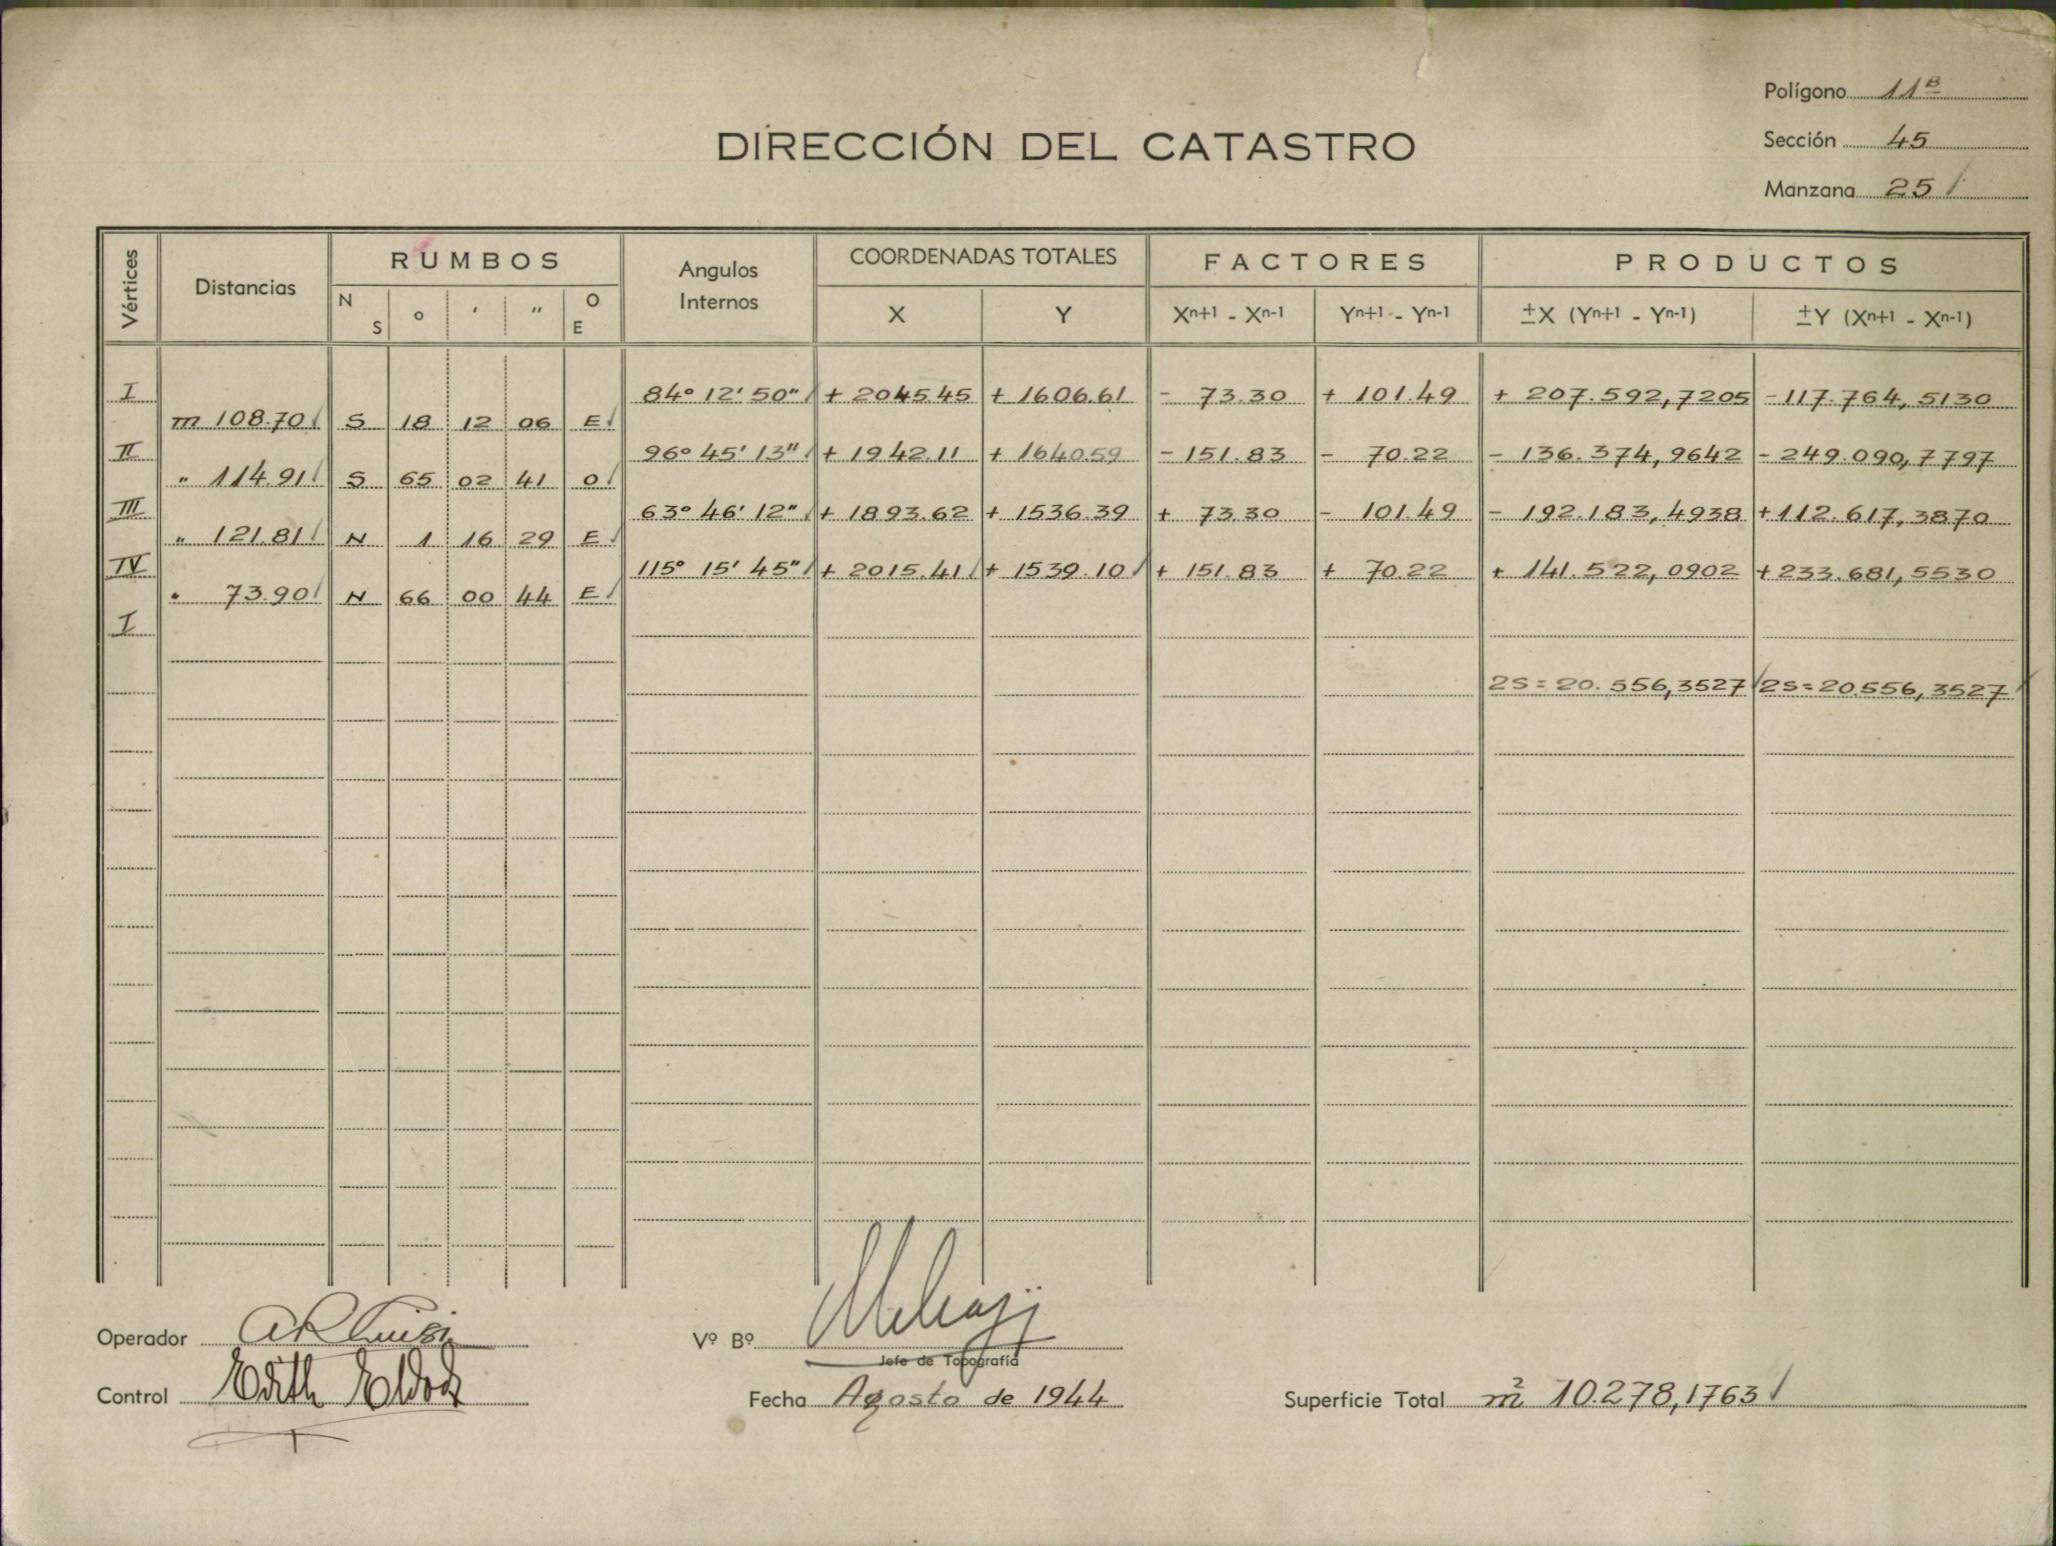 Polígono 11 B
DIRECCIÓN DEL CATASTRO
Sección 45
Manzana 25
Vértices Distancias RUMBOS Angulos Internos COORDENADAS TOTALES FACTORES PRODUCTOS
N S ° ' " O E X Y Xn+1 - Xn-1 Yn+1 - Yn-1 ±X (Yn+1 - Yn-1) ±Y (Xn+1 - Xn-1)
I 84° 12' 50" + 2045.45 + 1606.61 - 73.30 + 101.49 + 207.592,7205 - 117.764,5130
m 108.70 S 18 12 06 E
II 96° 45' 13" + 1942.11 + 1640.59 - 151.83 - 70.22 - 136.374,9642 - 249.090,7797
" 114.91 S 65 02 41 O
III 63° 46' 12" + 1893.62 + 1536.39 + 73.30 - 101.49 - 192.183,4938 + 112.617,3870
" 121.81 N 1 16 29 E
IV 115° 15' 45" + 2015.41 + 1539.10 + 151.83 + 70.22 + 141.522,0902 + 233.681,5530
" 73.90 N 66 00 44 E
I
2S = 20.556,3527 2S = 20.556,3527
Operador
Vº Bº
Jefe de Topografía
Control Edith
Fecha Agosto de 1944
Superficie Total m² 10.278,1763